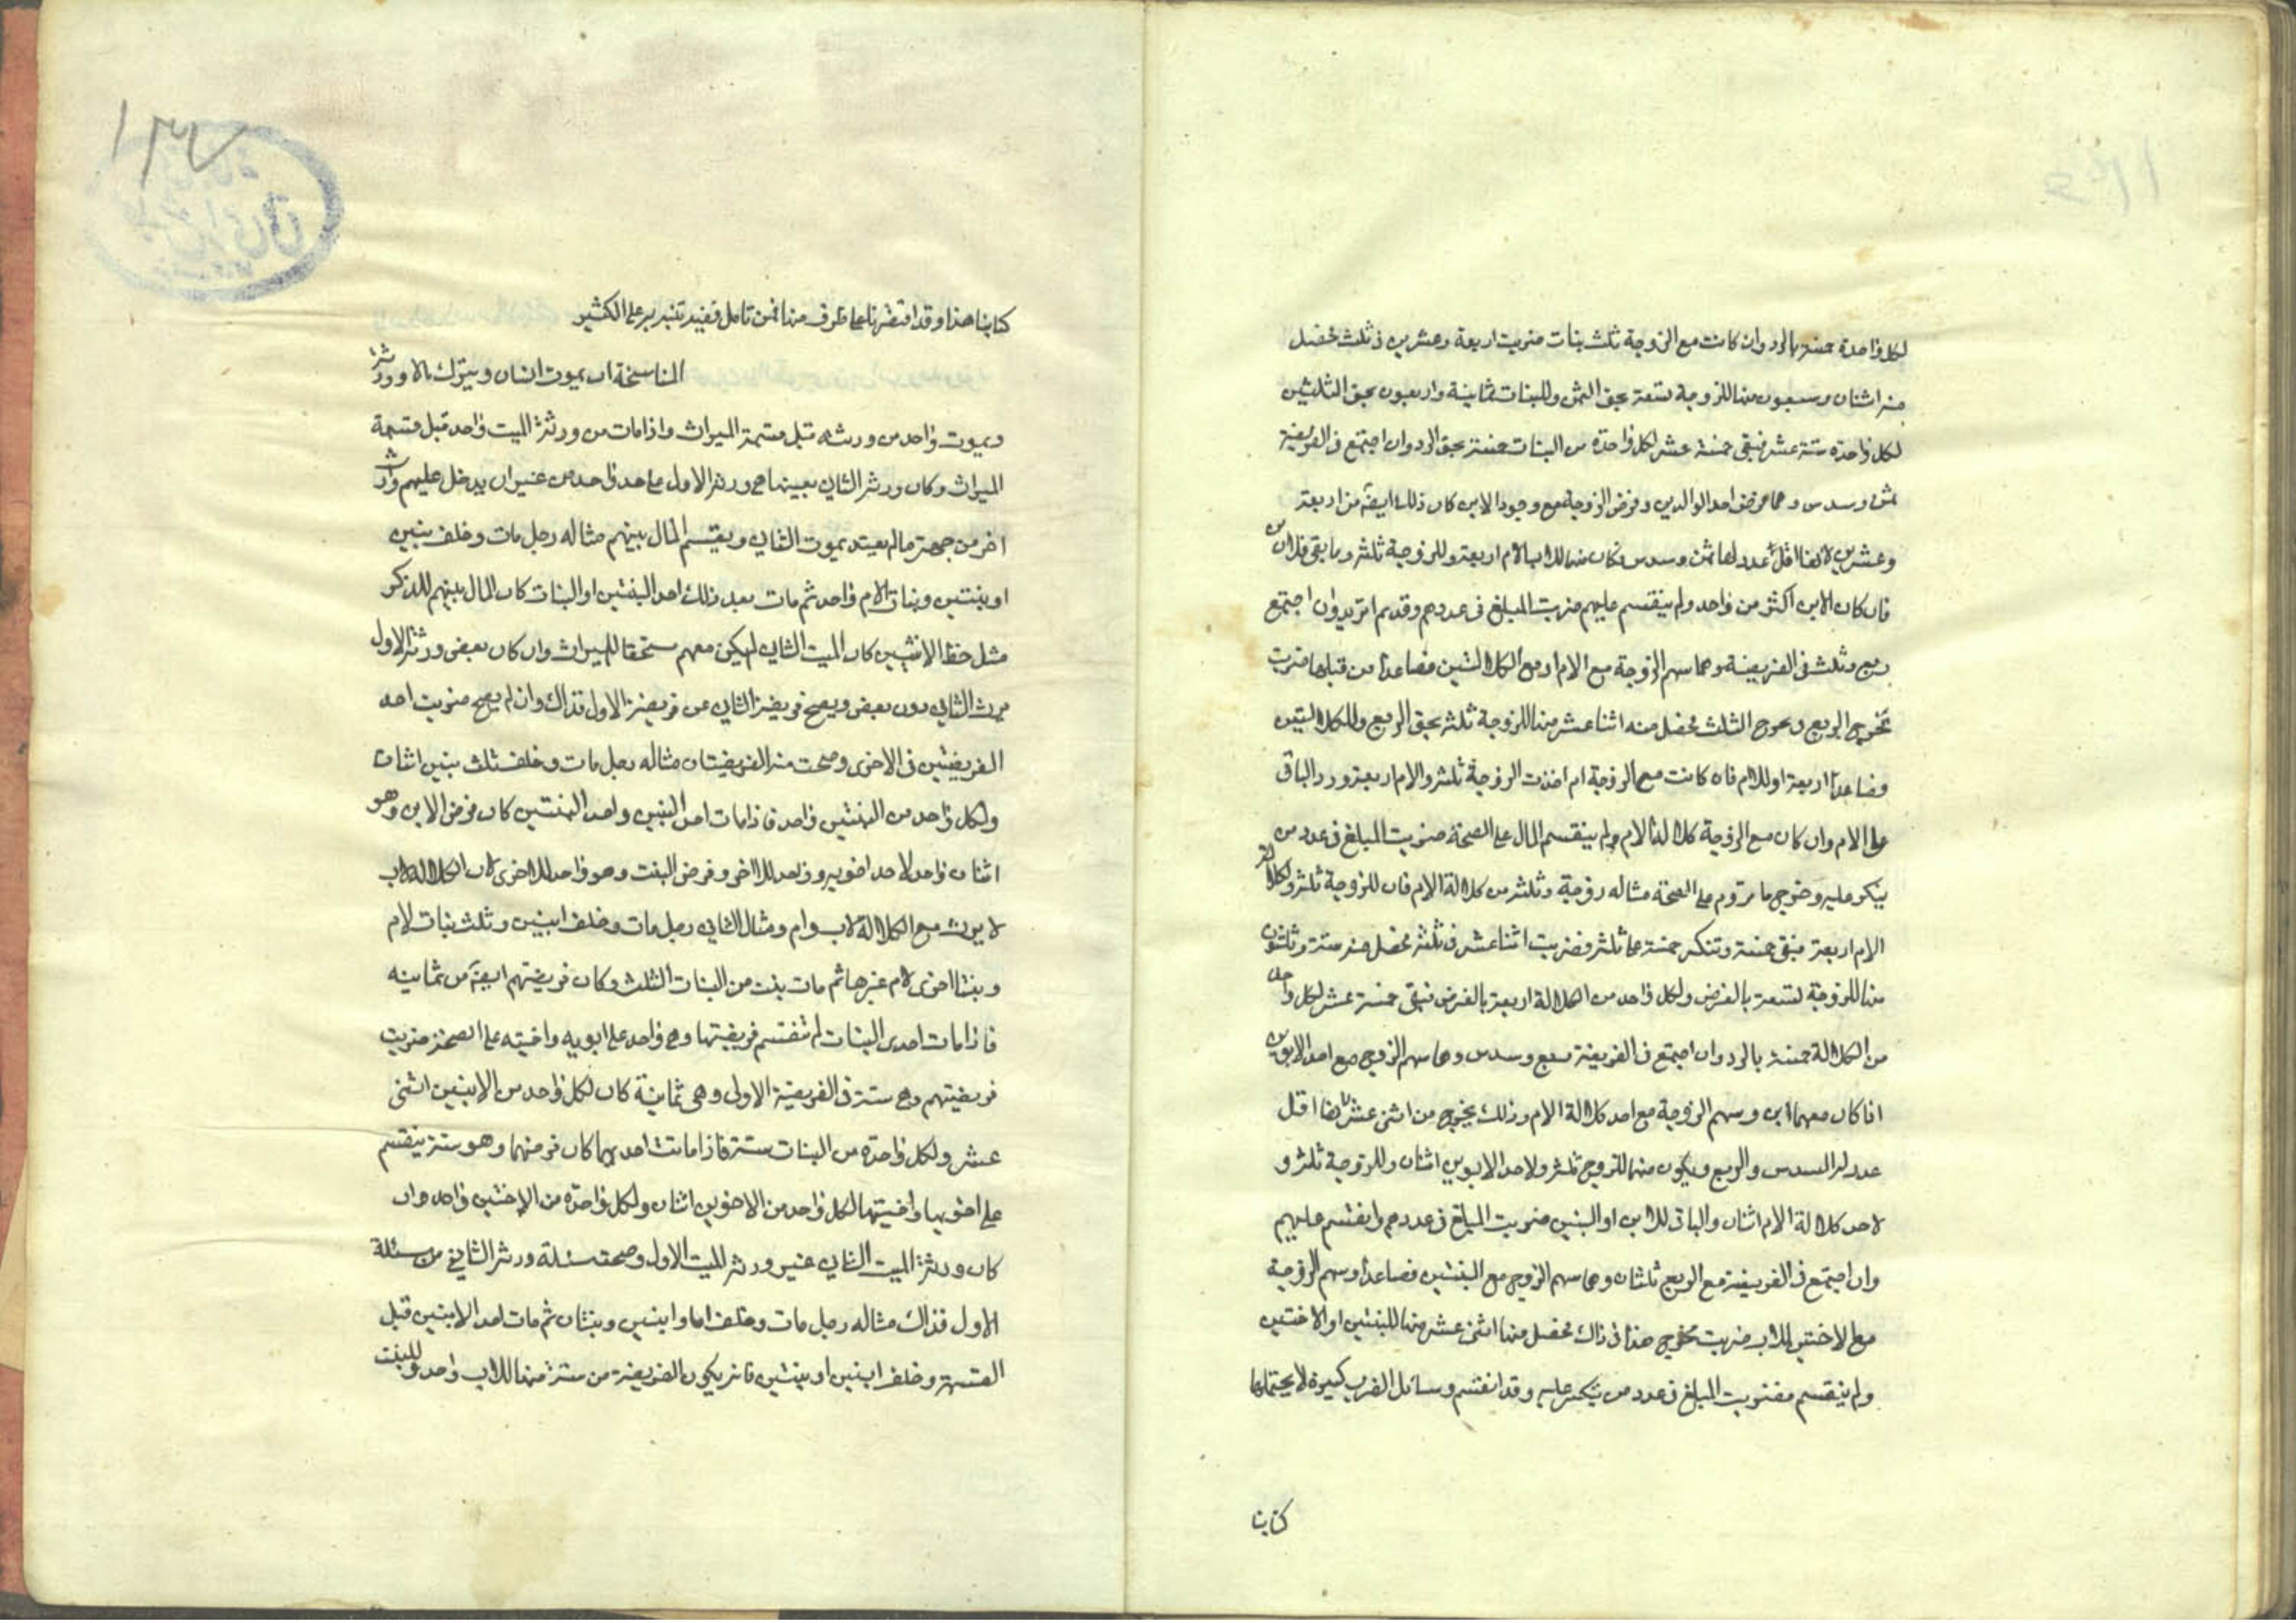 لكل واحدة خمسة بالرد وان كانت مع الزوجة ثلث بنات ضربت اربعة وعشرين في ثلث فحصل
منه اثنان وسبعون منها للزوجة تسعة بحق الثمن وللبنات ثمانية واربعون بحق الثلثين
لكل واحدة ستة عشر فيبقى خمسة عشر لكل واحدة من البنات خمسة بحق الرد وان اجتمع في الفريضة
ثمن وسدس وهما فرض احد الوالدين وفرض الزوجة مع وجود الابن كان ذلك ايضا من اربعة
وعشرين لانها اقل عدد لها ثمن وسدس وكان منها للاب او الام اربعة وللزوجة ثلثة وما بقي فللابن
فان كان الابن اكثر من واحد ولم ينقسم عليهم ضربت المبلغ في عددهم وقد وان اجتمع
ربع وثلث في الفريضة وهما سهم الزوجة مع الام او مع الكلالتين فصاعدا من قبلها ضربت
مخرج الربع في مخرج الثلث فحصل منه اثنا عشر منها للزوجة ثلثة بحق الربع وللكلالتين
فصاعدا اربعة او للام فان كانت مع الزوجة ام اخذت الزوجة ثلثة والام اربعة ورد الباقي
على الام وان كان مع الزوجة كلالة الام ولم ينقسم المال على الصحة ضربت المبلغ في عدد من
ينكسر عليه وخرج ما تروم على الصحة مثاله زوجة وثلثة من كلالة الام فان للزوجة ثلثة ولكلالة
الام اربعة فبقي خمسة وتنكسر خمسة على ثلثة فضربت اثنا عشر في ثلثة فحصل منه ستة وثلثون
منها للزوجة تسعة بالفرض ولكل واحد من الكلالة اربعة بالفرض فبقي خمسة عشر لكل واحد
من الكلالة خمسة بالرد وان اجتمع في الفريضة ربع وسدس وهما سهم الزوج مع احد الابوين
اذا كان معهما ابن وسهم الزوجة مع احد كلالة الام وذلك يخرج من اثنى عشر لانها اقل
عدد له السدس والربع ويكون منها للزوج ثلثة ولاحد الابوين اثنان وللزوجة ثلثة و
لاحد كلالة الام اثنان والباقي للابن او البنين ضربت المبلغ في عددهم وانقسم عليهم
وان اجتمع في الفريضة مع الربع ثلثان وهما سهم الزوج مع البنتين فصاعدا وسهم الزوجة
مع الاختين للاب ضربت مخرج هذا في ذاك فحصل منها اثنى عشر منها للبنتين او الاختين
ولم ينقسم فضربت المبلغ في عدد من ينكسر عليه وقد انقسم وسائل الضرب كثيرة لا يحتملها
كتابنا
كتابنا هذا وقد اقتصرنا على طرف منها فمن تامل وفيه تنبه به على الكثير
المناسخة ان يموت انسان ويترك مالا وورثة
ويموت واحد من ورثته قبل قسمة الميراث واذا مات من ورثة الميت واحد قبل قسمة
الميراث وكان ورثة الثاني بعينها هي ورثة الاول على حد واحد من غير ان يدخل عليهم وارث
اخر من جهة ما لم يعتد بموت الثاني ويقسم المال بينهم مثاله رجل مات وخلف بنين
او بنتين وبنات لام واحد ثم مات بعد ذلك احد البنتين او البنات كان المال بينهم للذكر
مثل حظ الانثيين كان الميت الثاني لم يكن معهم مستحقا للميراث وان كان بعض ورثة الاول
يرث الثاني دون بعض ويصح فريضة الثاني من فريضة الاول فذاك وان لم يصح ضربت احد
الفريضتين في الاخرى وصحت منه الفريضتان مثاله رجل مات وخلف ثلث بنين اثنان
ولكل واحد من البنتين واحد فاذا مات احد البنين واحد البنتين كان فرض الابن وهو
اثنان واحد لاحد اخويه وواحد للاخر وفرض البنت وهو واحد للاخرى لان الكلالة لاب
لا يرث مع الكلالة لاب وام ومثال الثاني رجل مات وخلف ابنين وثلث بنات لام
وبنتا اخرى لام غيرها ثم مات بنت من البنات الثلث وكان فريضتهم ايضا من ثمانية
فاذا مات احدى البنات لم تنقسم فريضتها وهي واحد على ابويه واختيه على الصحة ضربت
فريضتهم وهي ستة في الفريضة الاولى وهي ثمانية كان لكل واحد من الابنين اثنى
عشر ولكل واحدة من البنات ستة فاذا ماتت احديهما كان فرضها وهو ستة ينقسم
على اخويها واختيها لكل واحد من الاخوين اثنان ولكل واحدة من الاختين واحد وان
كان ورثة الميت الثاني غير ورثة الميت الاول وصحت مسئلة ورثة الثاني من مسئلة
الاول فذاك مثاله رجل مات وخلف اما وابنين وبنتان ثم مات احد الابنين قبل
القسمة وخلف ابنين او بنتين فانه يكون الفريضة من ستة منها للاب واحد وللبنت